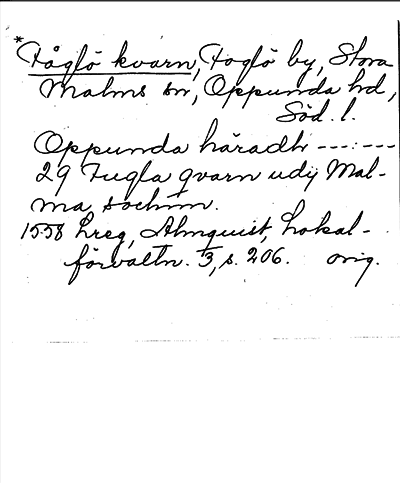 *Fåglö kvarn, Foglö by, Stora
Malms sn, Oppunda hd,
Söd. l.
Oppunda häradh ---:---
29 Fugla qvarn udij Mal-
ma sochnn.
1558 Lreg, Almquist, Lokal-
förvaltn. 3, s. 206. orig.